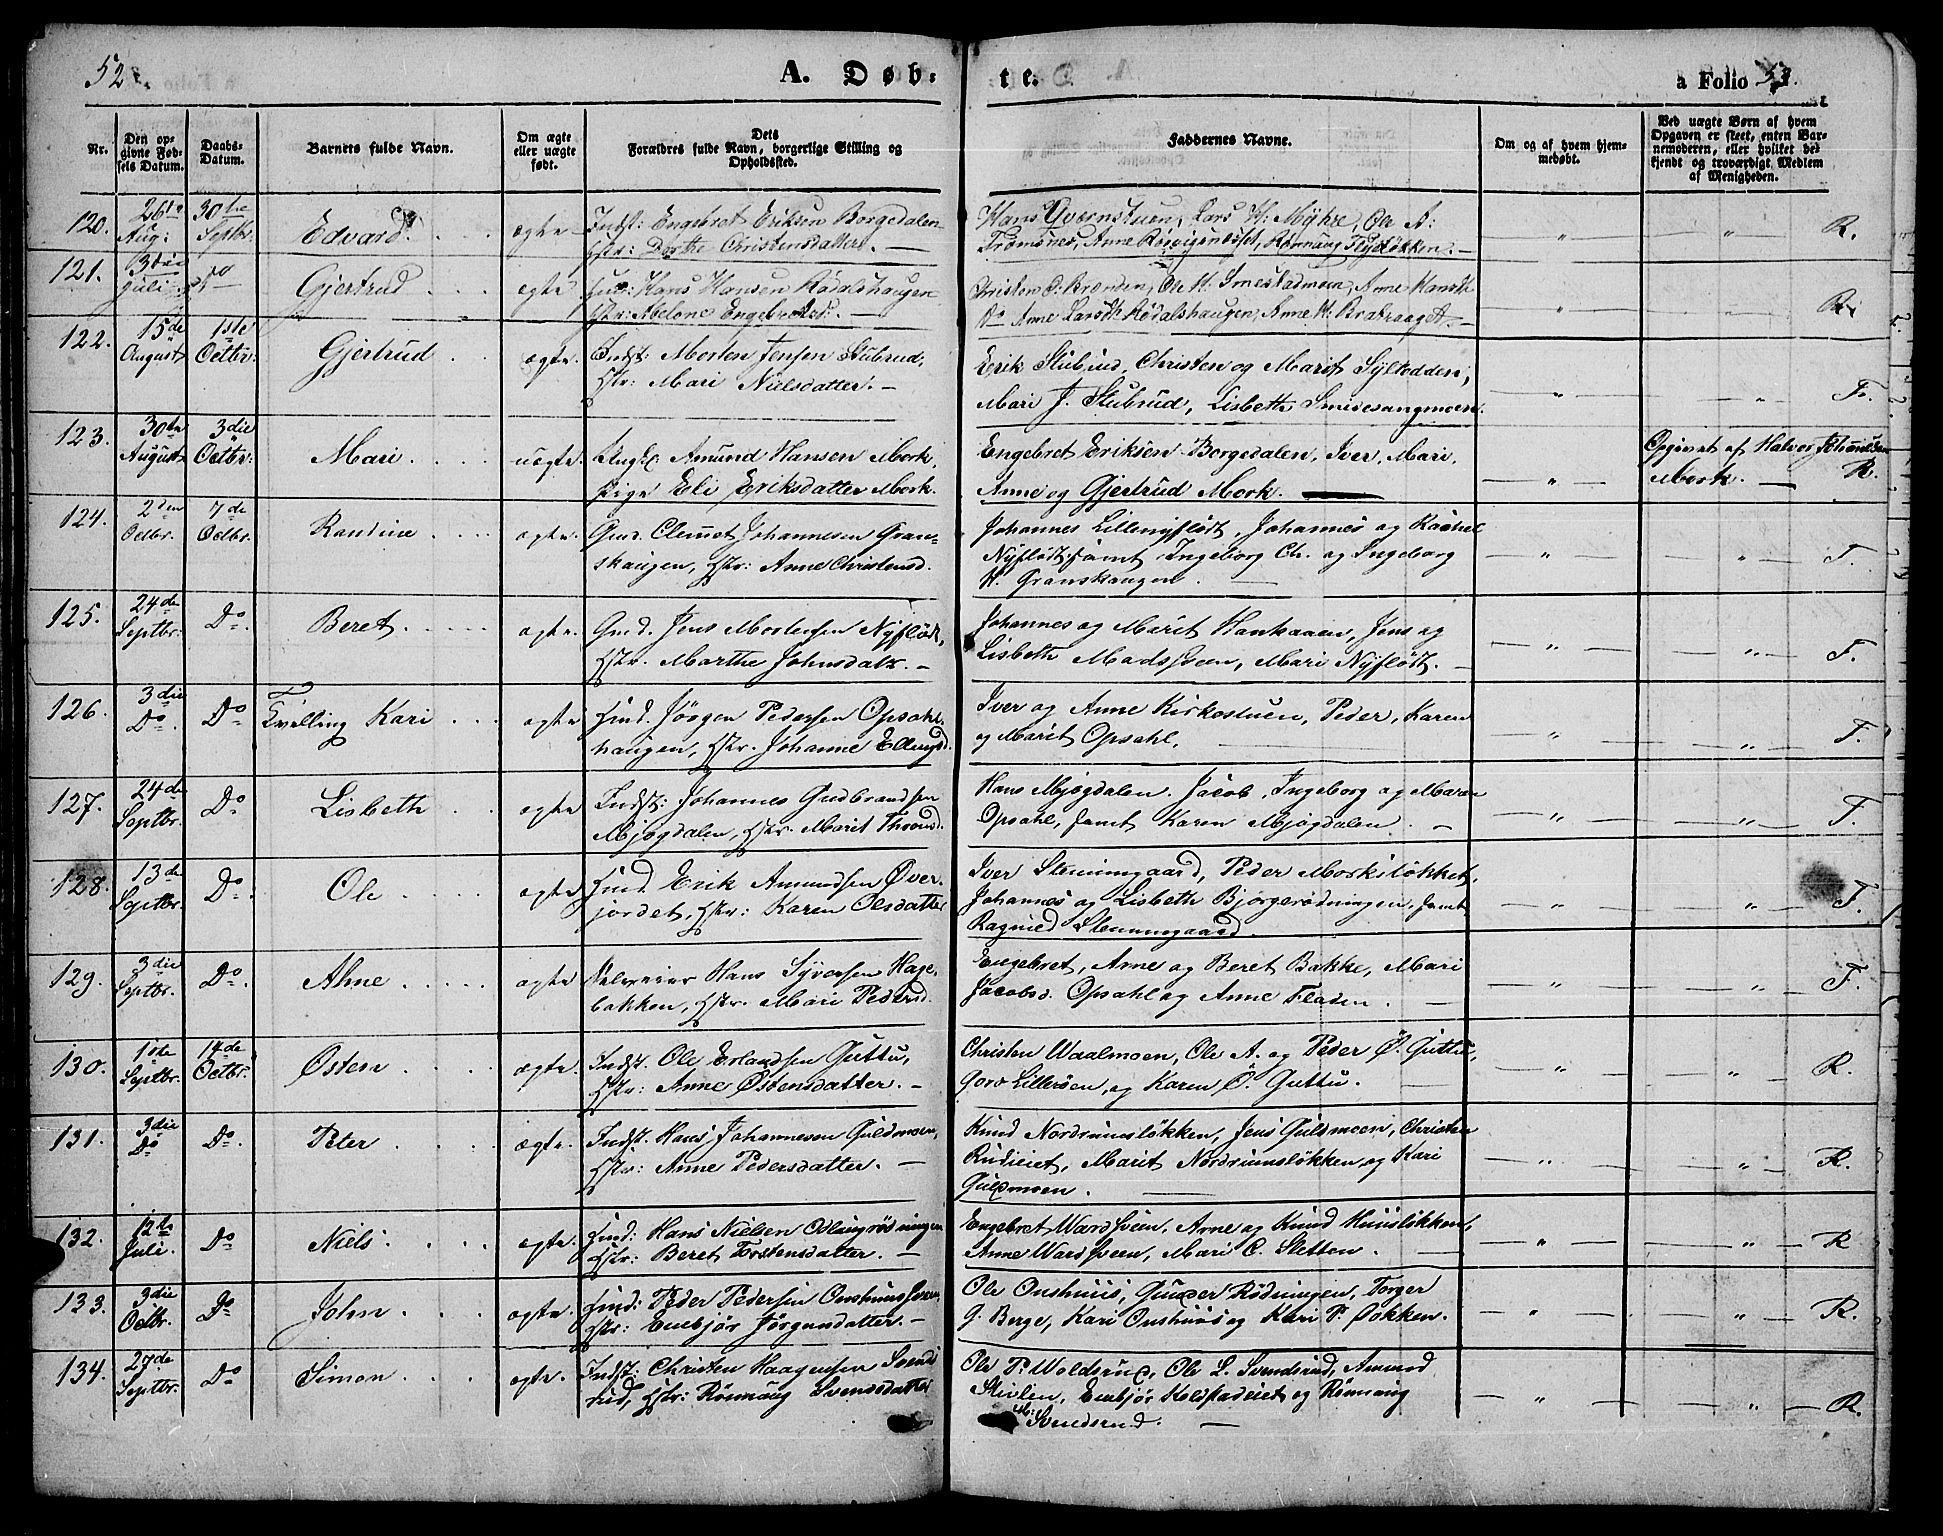 52.
A. Døb-
te.
a Folio 53.
Nr.
Den op-
givne Fød-
sels Datum.
Daabs-
Datum.
Barnets fulde Navn.
Om ægte
eller uægte
født.
Dets
Forældres fulde Navn, borgerlige Stilling og
Opholdssted.
Faddernes Navne.
Om og af hvem hjem-
medøbt.
Ved uægte Børn af hvem
Opgaven er skeet, enten Bar-
nemoderen, eller hvilket be-
kjendt og troværdigt Medlem
af Menigheden.
120. 26de Aug: 30te Septbr. Edvard. ægte Indst: Engebret Eriksen Borgedalen
Hstr: Dorthe Christensdatter. —
Hans Qvernstuen, Lars H: Myhre, Ole A:
Tromsnes, Anne Rønnaug Flydeløkken. — R.
121. Juli do Gjertrud ægte Hans Hansen Rødalshaugen
Hstr: Abelone Engebretsd: —
Christen P: Brænden, Ole H. Smestadmoen, Anne Hansdt
Do Anne Larsdt. Rødalshaugen, Anne H. — R.
122. 15de August 1ste Octbr: Gjertrud ægte. Indst: Morten Jensen Stubrud,
Hstr: Mari Nielsdatter. —
Erik Stubrud, Christen og Marit Sylteødden,
Mari J. Stubrud, Lisbeth Smidesangmoen. F.
123. 30te August 3die Octbr: Mari uægte. Ungk. Amund Hansen Mork,
Pige Eli Eriksdatter Mork.
Engebret Eriksen Borgedalen, Iver, Mari,
Anne og Gjertrud Mork. —
Opgivet af Halvor
Mork. — R.
124. 2den Octbr. 7de Octbr. Randine ægte. Gmd. Clemet Johannesen Gran-
skaugen, Hstr: Anne Christensd.
Johannes Lillenyflødt, Johannes og Rachel
Nyflødt, samt Ingeborg Ch. og Ingeborg
H. Granskaugen. — F.
125. 24de Septbr. Do. Beret. ægte. Gmd. Jens Mortensen Nyflødt,
Hstr. Marthe Johnsdatr. —
Johannes og Marit Haukaaen, Jens og
Lisbeth Madssveen, Mari Nyflødt. — F.
126. 3die Do. Do Tvilling Kari ægte Hmd. Jørgen Pedersen Opsahl-
haugen, Hstr. Johanne Ellingsd.
Iver og Anne Kirkestuen, Peder, Karen
og Marit Opsahl. F.
127. 24de Septbr. Do Lisbeth ægte Indst: Johannes Gudbrandsen
Mjøgdalen, Hstr. Marit Thronds.
Hans Mjøgdalen. Jacob, Ingeborg og Maren
Opsahl, samt Karen Mjøgdalen. — F.
128. 13de Septbr. Do. Ole ægte Hmd. Erik Amundsen Øver-
jordet, Hstr: Karen Olsdatter
Iver Stenumgaard, Peder Morkeløkket,
Johannes og Lisbeth Bjørgerødningen, samt
Ragnild Stenumgaard. F.
129. 3die Septbr. Do. Ahne ægte Hans Syversen Hage-
bakken, Hstr. Mari Pedersd.
Engebret, Arne og Beret Bakke, Mari
Jacobsd. Opsahl og Anne Fladen. — F.
130. Septbr. 14de Octbr. Østen ægte. Indst. Ole Erlandsen Guttu,
Hstr: Anne Østensdatter. —
Christen Waalmoen, Ole A. og Peder Ø. Guttu,
Goro Lillerøen, og Karen Ø. Guttu. — R.
131. 3die Do Do. Peter ægte. Indst. Hans Johannesen Guldmoen,
Hstr: Anne Pedersdatter. —
Knud Nordrumsløkken, Jens Guldmoen, Christen
Rudieiet, Marit Nordrumsløkken og Kari
Guldmoen. — R.
132. 12te Juli. Do Niels ægte. Hmd: Hans Nielsen Odlungrødningen
Hstr: Beret Torstensdatter. —
Engebret Wardsveen, Arne og Knud Huusløkken,
Anne Wardsveen, Mari C. Sletten. — R
133. 3die Octbr. Do John ægte. Hmd: Peder Pedersen Onshuussveen,
Hstr: Embjør Jørgensdatter. —
Ole Onshuus, Gunder Rødningen, Torger
G. Berge, Kari Onshuus og Kari P. Løkken. — R.
134. 27de Septbr. Do Simon ægte. Indst. Christen Haagensen Svends-
rud, Hstr: Rønnaug Svensdatter
Ole P. Wolderud, Ole L. Svendsrud, Amund
Stivlen, Embjør Kolstadeiet og Rønnaug
Svendsrud. — R.